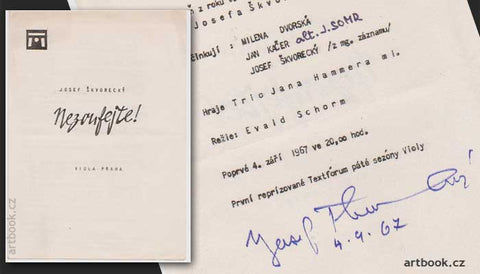 JOSEF ŠKVORECKÝ
Nezoufejte!
VIOLA PRAHA
artbook.cz
z roku
Josefa Škvo
činkují : MILENA DVORSKÁ
JAN KAČER alt. J. SOMR
JOSEF ŠKVORECKÝ /z mg. záznamu/
Hraje Trio Jana Hammera ml.
Režie: Evald Schorm
Poprvé 4. září 1967 ve 20,00 hod.
První reprízované Textfórum páté sezóny Violy
Josef
4.9.67
artbook.cz